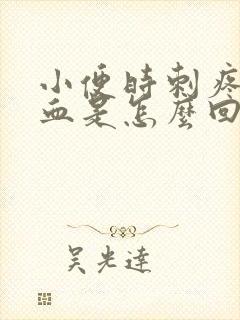 小便時刺疼
血是怎麼回
吴光達